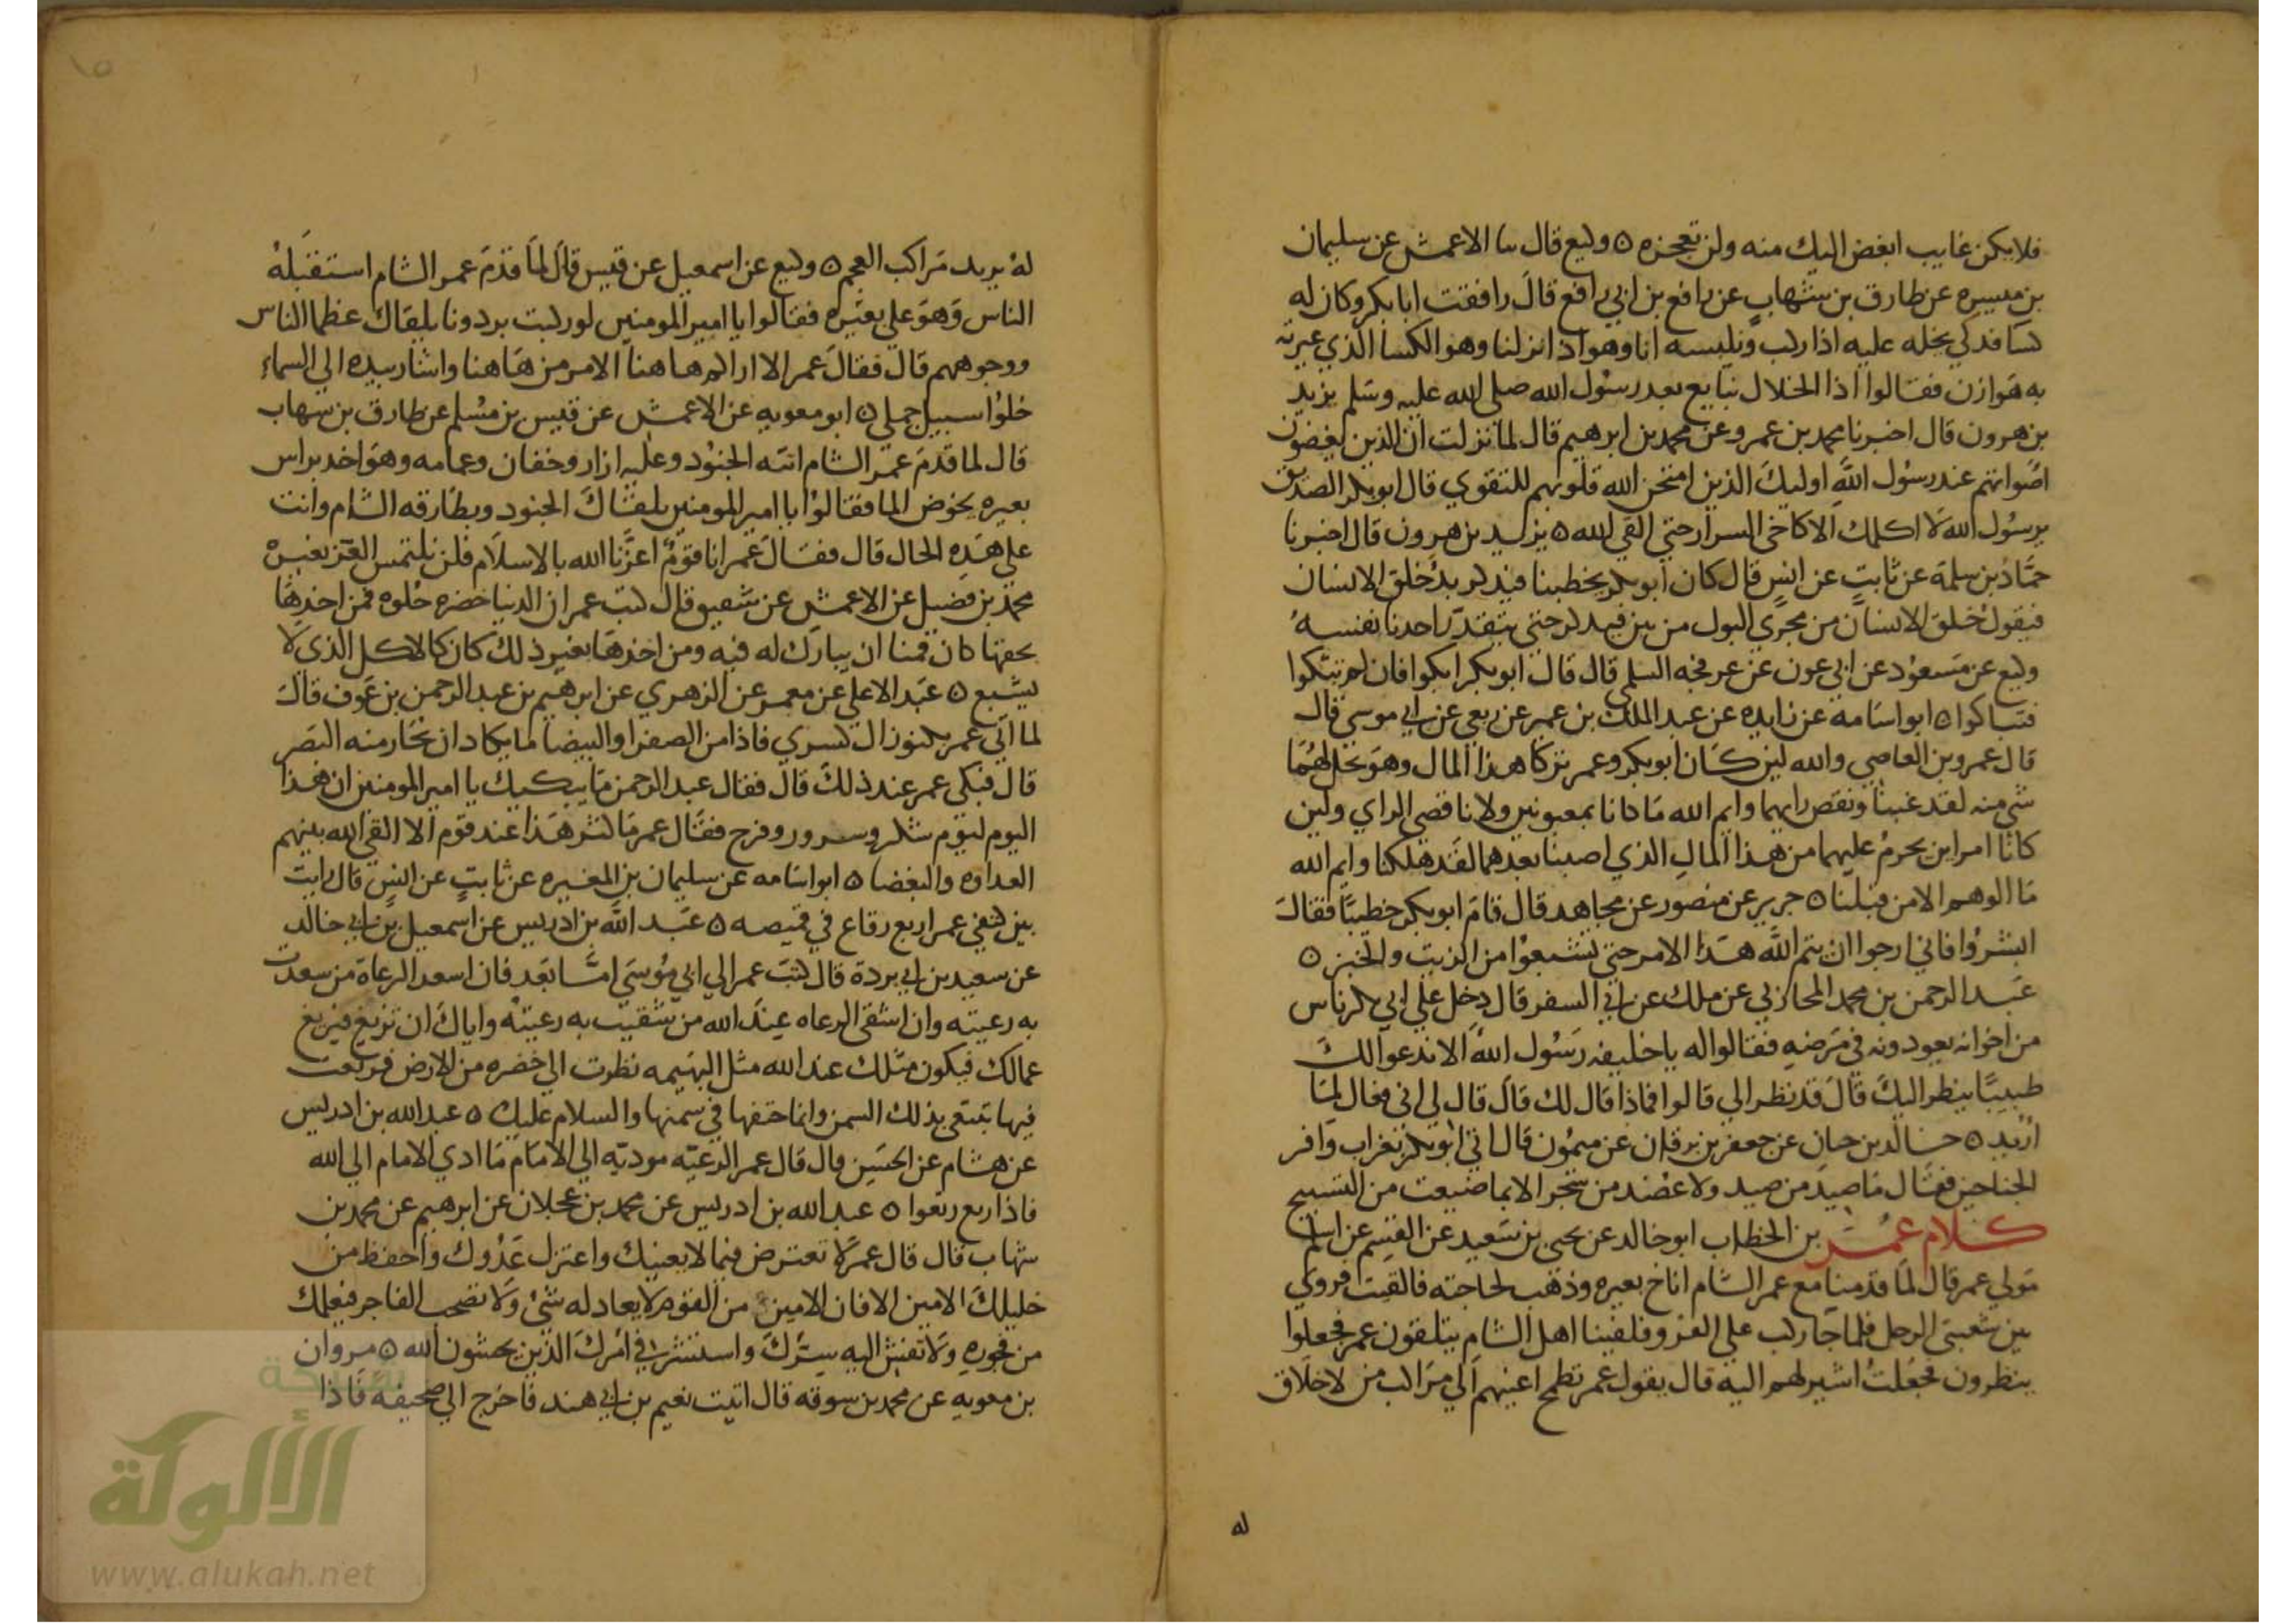 فلا يكن غايب ابغض اليك منه ولن تعجزه ٥ وكيع قال سا الاعمش عن سليمان
بن ميسره عن طارق بن شهاب عن رافع بن ابي رافع قال رافقت ابا بكر وكان له
كسا فدكي يخله عليه اذا ركب ونلبسه انا وهو اذا نزلنا وهو الكسا الذي عيرته
به هوازن فقالوا اذا الخلال نبايع بعد رسول الله صلى الله عليه وسلم يزيد
بن هرون قال اخبرنا محمد بن عمرو عن محمد بن ابرهيم قال لما نزلت ان الذين يغضون
اصواتهم عند رسول الله اوليك الذين امتحن الله قلوبهم للتقوي قال ابو بكر الصديق
يرسول الله لا اكلمك الا كاخي السرار حتي القي الله ٥ يزيد بن هرون قال اخبرنا
حماد بن سلمة عن ثابت عن انس قال كان ابو بكر يخطبنا فيذكر بدء خلق الانسان
فيقول خلق الانسان من مجري البول من نتن فيذكر حتي يتقذر احدنا نفسه
وكيع عن مسعود عن ابي عون عن عرفجه السلمي قال قال ابو بكر ابكوا فان لم تبكوا
فتباكوا ٥ ابو اسامة عن زايده عن عبد الملك بن عمير عن ربعي عن ابي موسى قال
قال عمرو بن العاصي والله لين كان ابو بكر وعمر تركا هذا المال وهو يحل لهما
شي منه لقد غبنا ونقص رايهما وايم الله ما كانا بمغبونين ولا ناقصي الراي ولين
كانا امراين يحرم عليهما من هذا المال الذي اصبنا بعدهما لقد هلكنا وايم الله
ما الوهم الا من قبلنا ٥ جرير عن منصور عن مجاهد قال قام ابو بكر خطيبا فقال
ابشروا فاني ارجوا ان يتم الله هذا الامر حتي تشبعوا من الزيت والخبز ٥
عبد الرحمن بن محمد المحاربي عن ملك عن ابي السفر قال دخل علي ابي بكر ناس
من اخوانه يعودونه في مرضه فقالوا له يا خليفه رسول الله الا ندعوا لك
طبيبا ينظر اليك قال قد نظر الي قالوا فماذا قال لك قال قال لي اني فعال لما
اريد ٥ خالد بن حيان عن جعفر بن برقان عن ميمون قال اتي ابو بكر بغراب وافر
الجناحين فقال ما صيد من صيد ولا عضد من شجر الا بما ضيعت من التسبيح
كلام عمر بن الخطاب ابو خالد عن يحيى بن سعيد عن القسم عن اسلم
مولي عمر قال لما قدمنا مع عمر الشام اناخ بعيره وذهب لحاجته فالقيت فروتي
بين شعبتي الرحل فلما جا ركب علي الفرو فلقينا اهل الشام يتلقون عمر فجعلوا
ينظرون فجعلت اشير لهم اليه قال يقول عمر تطمح اعينهم الي مراكب من لا خلاق
له
له يريد مراكب العجم ٥ وكيع عن اسمعيل عن قيس قال لما قدم عمر الشام استقبله
الناس وهو علي بعيره فقالوا يا امير المومنين لو ركبت برذونا يلقاك عظما الناس
ووجوههم قال فقال عمر الا اراكم هاهنا الامر من هاهنا واشار بيده الي السماء
خلوا سبيل جملي ٥ ابو معويه عن الاعمش عن قيس بن مسلم عن طارق بن شهاب
قال لما قدم عمر الشام اتته الجنود وعليه ازار وخفان وعمامه وهو اخد براس
بعيره يخوض الما فقالوا يا امير المومنين يلقاك الجنود وبطارقه الشام وانت
علي هذه الحال قال فقال عمر انا قوم اعزنا الله بالاسلام فلن نلتمس العز بغيره
محمد بن فضيل عن الاعمش عن شقيق قال كتب عمر ان الدنيا خضره حلوه فمن اخذها
بحقها كان قمنا ان يبارك له فيه ومن اخذها بغير ذلك كان كالاكل الذي لا
يشبع ٥ عبد الاعلي عن معمر عن الزهري عن ابرهيم بن عبد الرحمن بن عوف قال
لما اتي عمر بكنوز ال كسري فاذا من الصفرا والبيضا ما يكاد ان يحار منه البصر
قال فبكى عمر عند ذلك قال فقال عبد الرحمن ما يبكيك يا امير المومنين ان هذا
اليوم ليوم شكر وسرور وفرح فقال عمر ما كثر هذا عند قوم الا القي الله بينهم
العداوه والبغضا ٥ ابو اسامه عن سليمان بن المغيره عن ثابت عن انس قال رايت
بين كتفي عمر اربع رقاع في قميصه ٥ عبد الله بن ادريس عن اسمعيل بن ابي خالد
عن سعيد بن ابي بردة قال كتب عمر الي ابي موسي اما بعد فان اسعد الرعاة من سعدت
به رعيته وان اشقى الرعاه عند الله من شقيت به رعيته واياك ان تزيغ فيزيغ
عمالك فيكون مثلك عند الله مثل البهيمه نظرت الي خضره من الارض فرتعت
فيها تبتغي بذلك السمن وانما حتفها في سمنها والسلام عليك ٥ عبد الله بن ادريس
عن هشام عن الحسن قال قال عمر الرعيه موديه الي الامام ما ادي الامام الي الله
فاذا رتع رتعوا ٥ عبد الله بن ادريس عن محمد بن عجلان عن ابرهيم عن محمد بن
شهاب قال قال عمر لا تعترض فيما لا يعنيك واعتزل عدوك واحفظ من
خليلك الامين الا فان الامين من القوم لا يعادله شئ ولا تصحب الفاجر فيعلمك
من فجوره ولا تفش اليه سرك واستشر في امرك الذين يخشون الله ٥ مروان
بن معويه عن محمد بن سوقه قال اتيت نعيم بن ابي هند فاخرج الي صحيفه فاذا
شبكة
الألوكة
www.alukah.net